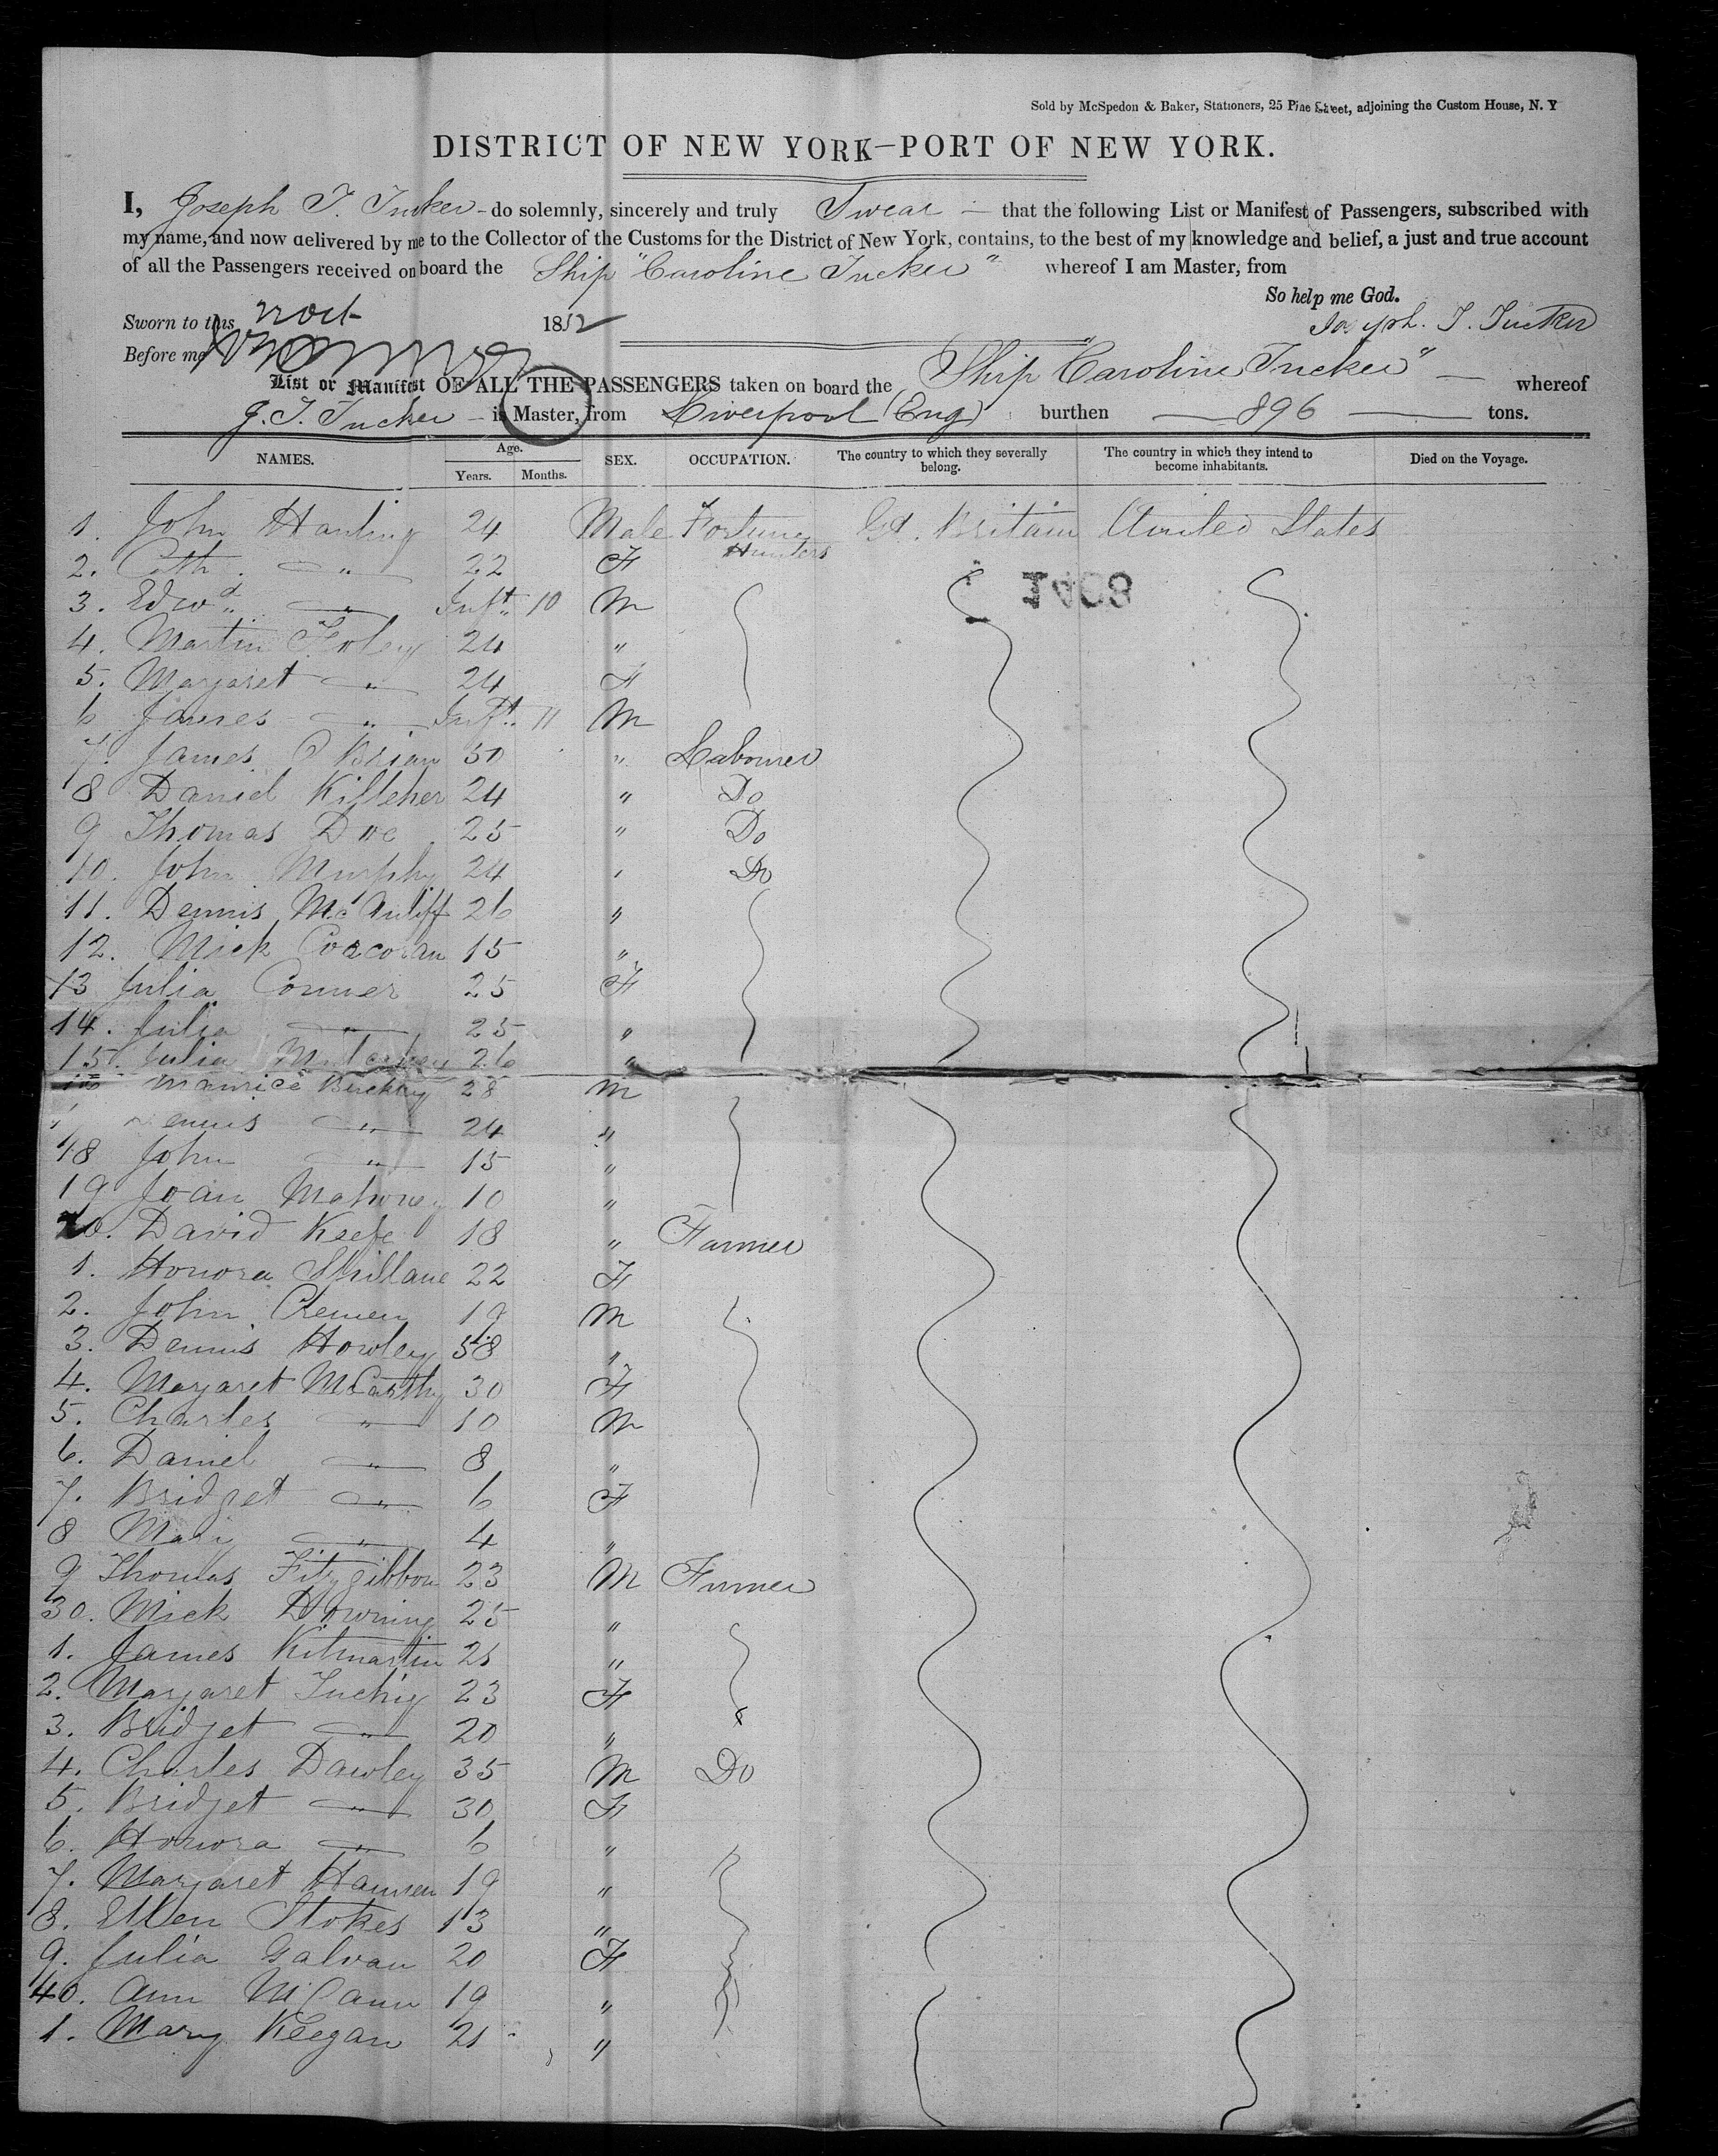 Sold by McSpedon & Baker, Stationers, 25 Pine Street, adjoining the Custom House, N. Y
DISTRICT OF NEW YORK—PORT OF NEW YORK.
I, Joseph T. Tucker - do solemnly, sincerely and truly Swear — that the following List or Manifest of Passengers, subscribed with
my name, and now delivered by me to the Collector of the Customs for the District of New York, contains, to the best of my knowledge and belief, a just and true account
of all the Passengers received on board the Ship "Caroline Tucker" whereof I am Master, from
So help me God.
Sworn to this 1852 Joseph. T. Tucker
Before me
List or Manifest OF ALL THE PASSENGERS taken on board the Ship Caroline Tucker" — whereof
J. T. Tucker - is Master, from Liverpool (Eng) burthen — 896 — tons.
NAMES. Age. Years. Months. SEX. OCCUPATION. The country to which they severally belong. The country in which they intend to become inhabitants. Died on the Voyage.
1. John 24 Male Fortune Hunters Gt. Britain United States
2. Cath. " 22 F
3. Edwd " Inft 10 M 1408
4. Martin Foley 24 "
5. Margaret " 24 F
6 James " Inft. 11 M
7. James O Brian 50 " Labourer
8 Daniel Killeher 24 " Do
9 Thomas 25 " Do
10. John Murphy 24 " Do
11. Dennis McAuliff 26 "
12. Mick Corcoran 15 "
13 Julia Conner 25 F
14. Julia " 25 "
15. Julia 26 "
Maurice Buckley 28 M
" 24 "
18 John " 15 "
19 Joan Mahoney 10 "
20. David Keefe 18 " Farmer
1. Honora Shillane 22 F
2. John 19 M
3. Dennis Howley 58 "
4. Margaret McCarthy 30 F
5. Charles " 10 M
6. Daniel " 8 "
7. Bridget " 6 F
8 Mary " 4 "
9 Thomas Fitzgibbon 23 M Farmer
30. Mick Downing 25 "
1. James Kilmartin 21 "
2. Margaret 23 F
3. Bridget " 20 "
4. Charles Dawley 35 M Do
5. Bridget " 30 F
6. Honora " 6 "
7. Margaret 19 "
8. Ellen Stokes 13 "
9. Julia Galvan 20 F
40. Ann McCann 19 "
1. Mary Keegan 21 "